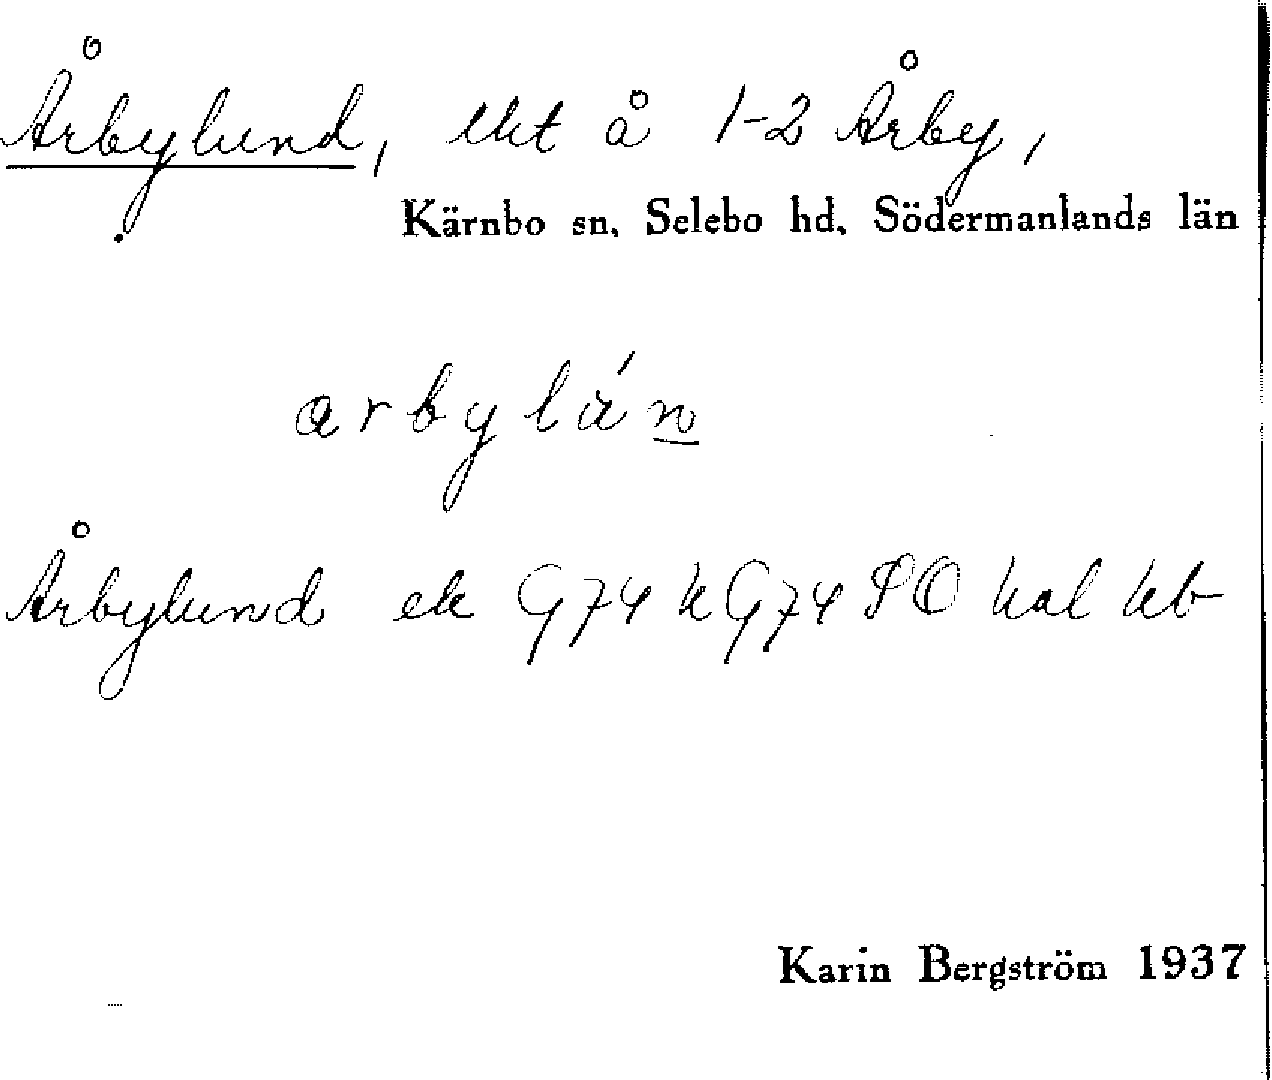 Årbylund, lht å 1-2 Årby,
Kärnbo sn, Selebo hd, Södermanlands län
arbylún
Årbylund ek G74 k G74 SO hal hb
Karin Bergström 1937